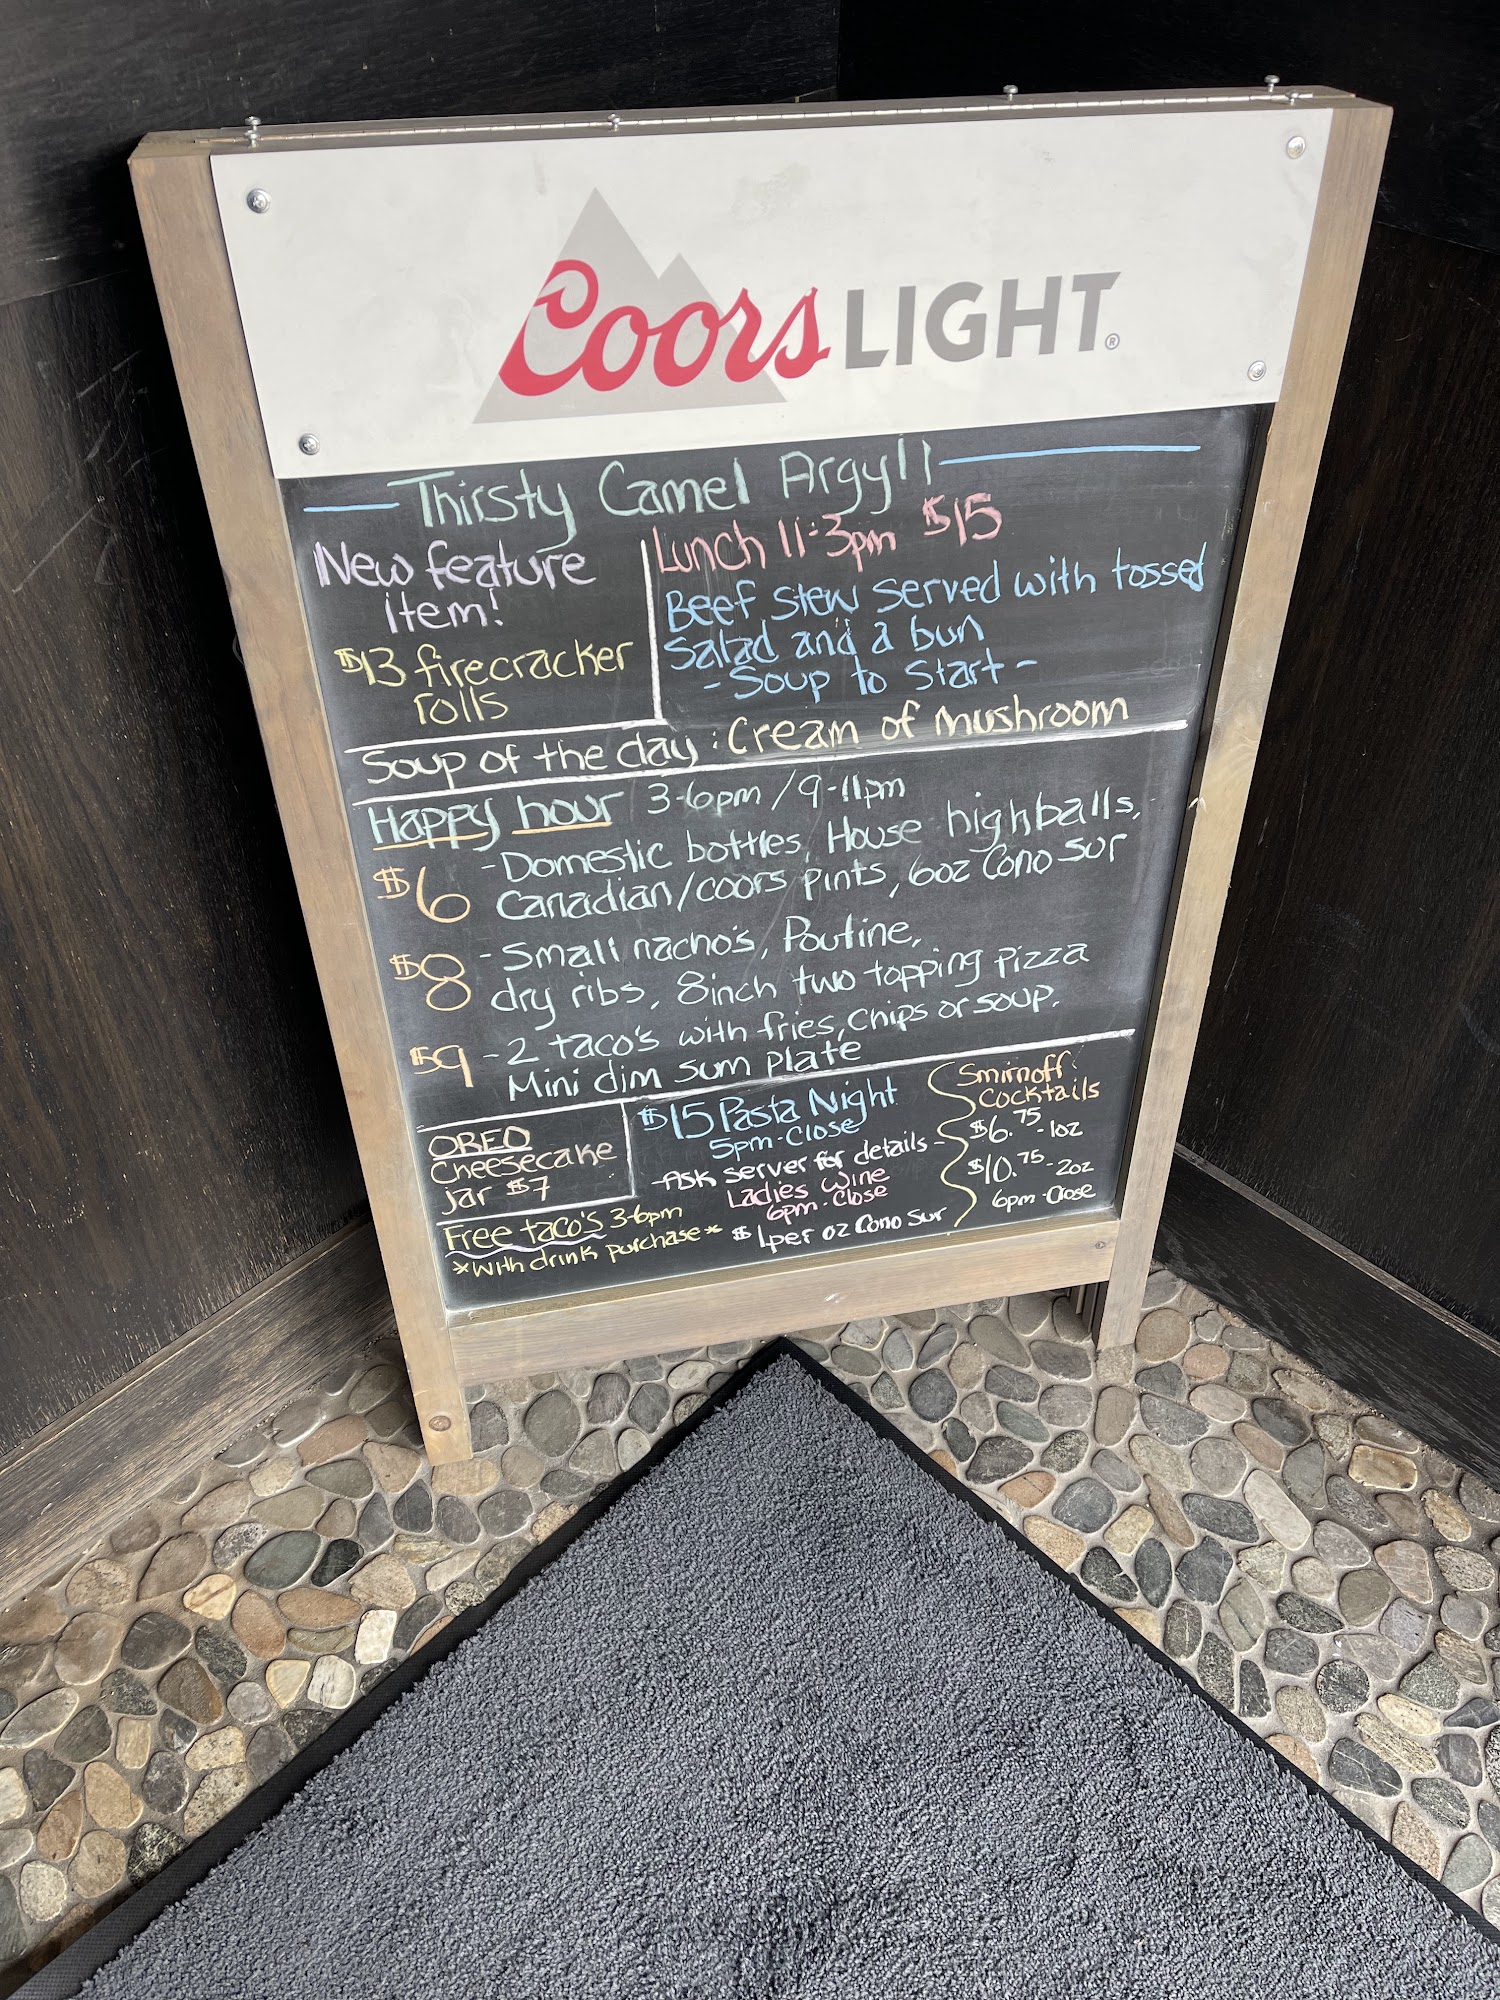 Coors LIGHT®
Thirsty Camel Argyll
New feature
item!
$13 firecracker
rolls
Lunch 11-3pm $15
Beef stew served with tossed
salad and a bun
- Soup to start -
Soup of the day : Cream of mushroom
Happy hour 3-6pm / 9-11pm
$6 - Domestic bottles, House highballs,
Canadian/coors pints, 6oz Cono Sur
$8 - Small nacho's, Poutine,
dry ribs, 8inch two topping pizza
$9 - 2 taco's with fries, chips or soup.
Mini dim sum plate
OREO
Cheesecake
jar $7
Free taco's 3-6pm
*with drink purchase*
$15 Pasta Night
5pm-Close
-Ask server for details-
Ladies Wine
6pm-Close
$1 per oz Cono Sur
Smirnoff
Cocktails
$6.75-1oz
$10.75-2oz
6pm-Close